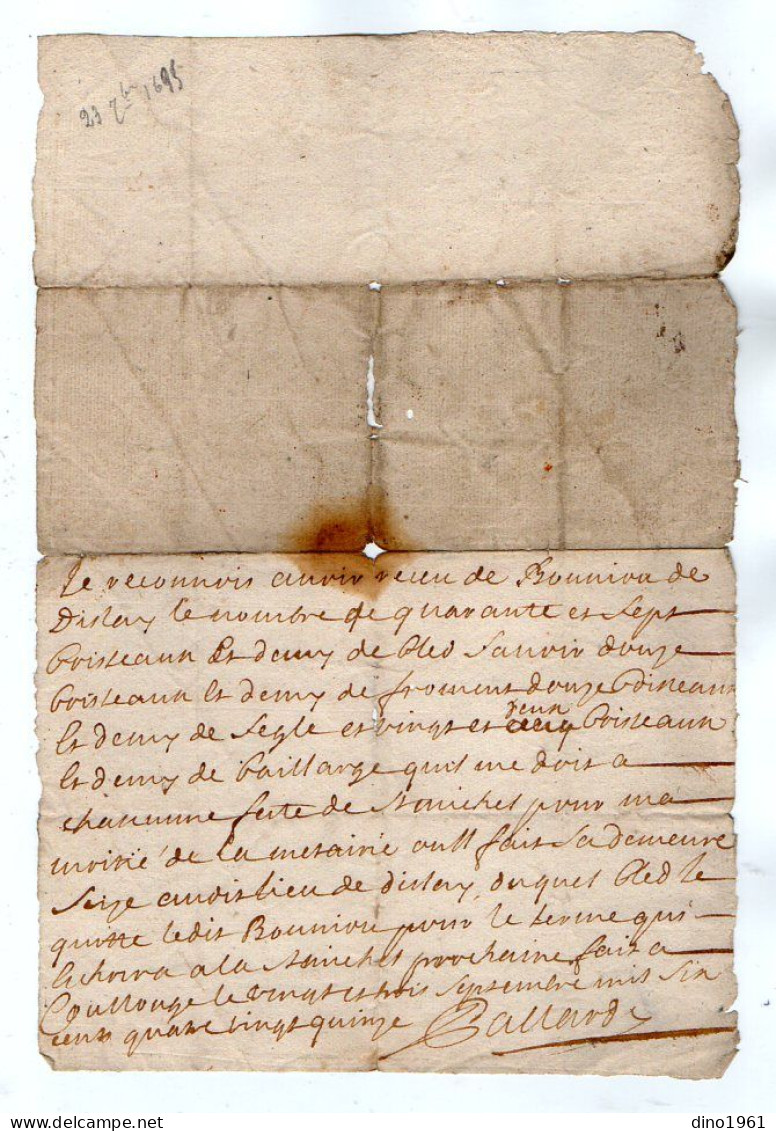 23 7bre 1695
Je reconnois auvoir receu de Bouniou de
Dislay le nombre de quarante et sept
boisseaux et demy de bled sauvoir douze
boisseaux et demy de froment douze boisseaux
et demy de segle et vingt et deux boisseaux
et demy de baillarge quil me doit a
chaucunne feste de St michel pour ma
moitié de la metairie ou Il fait sa demeure
size audit lieu de dislay, duquel bled Je
quitte ledit Bouniou pour le terme qui
Echoira a la St michel prochaine fait a
Coullonge le vingt et trois septembre mil six
cents quatre vingt quinze Pallardy
dino1961